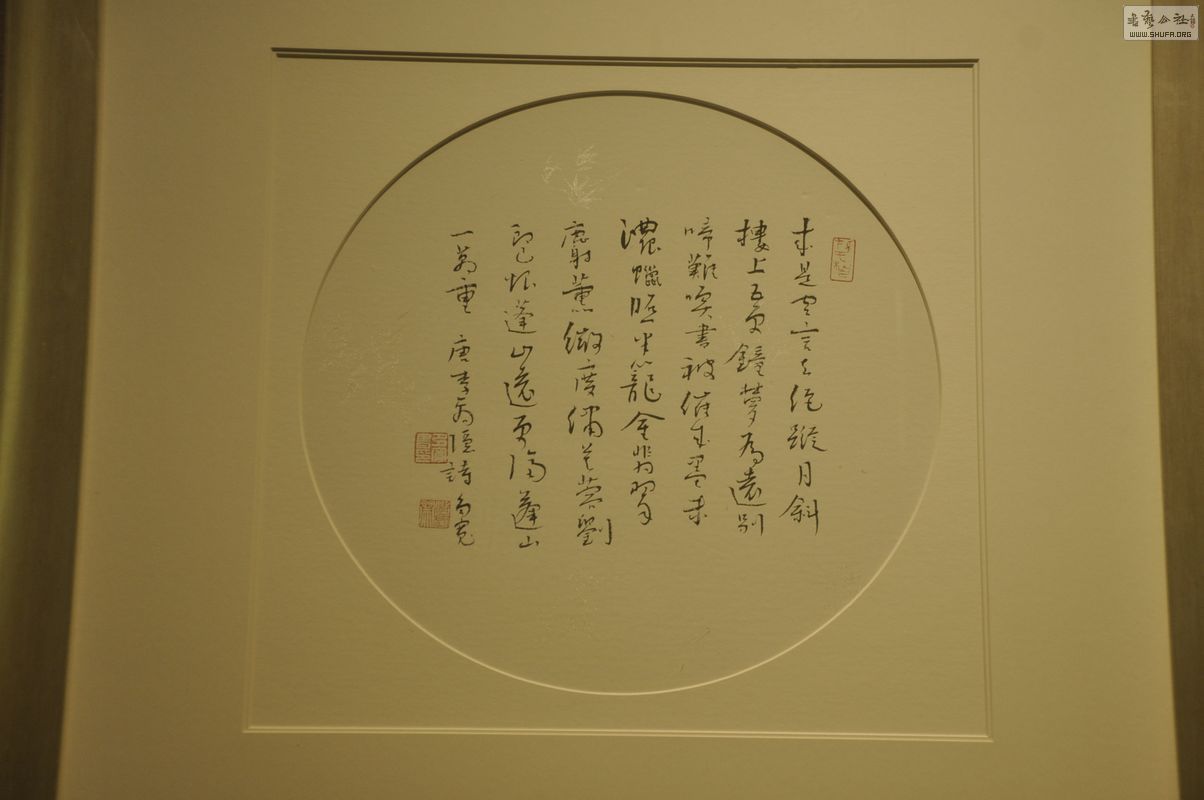 来是空言去絶蹤月斜
樓上五更鐘夢為遠別
啼難喚書被催成墨未
濃蠟照半籠金翡翠
麝薰微度繡芙蓉劉
郎已恨蓬山遠更隔蓬山
一萬重 唐李商隱詩
書藝公社
WWW.SHUFA.ORG